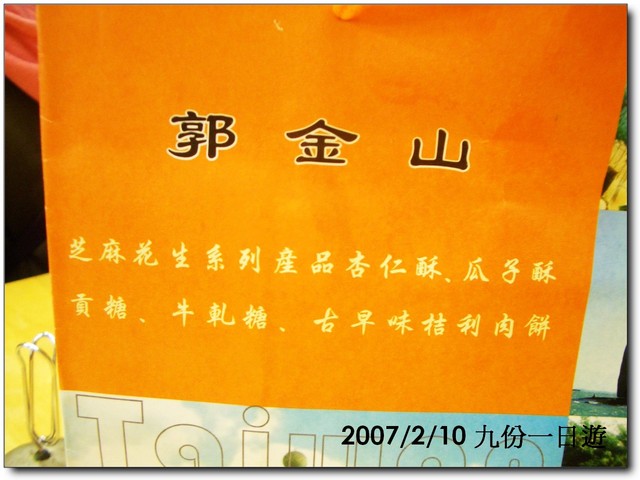 郭金山
芝麻花生系列産品杏仁酥、瓜子酥
貢糖、牛軋糖、古早味桔利肉餅
Taiwan
2007/2/10 九份一日遊